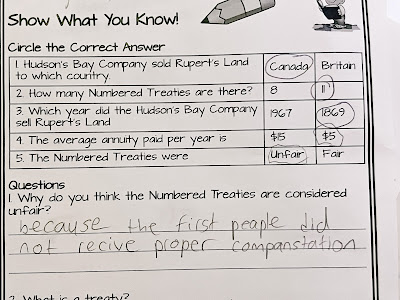 Show What You Know!
Circle the Correct Answer
1. Hudson's Bay Company sold Rupert's Land Canada Britain
to which country.
2. How many Numbered Treaties are there? 8 11
3. Which year did the Hudson's Bay Company 1967 1869
sell Rupert's Land
4. The average annuity paid per year is $15 $5
5. The Numbered Treaties were Unfair Fair
Questions
1. Why do you think the Numbered Treaties are considered
unfair?
because the first people did
not recive proper companstation
2. What is a treaty?